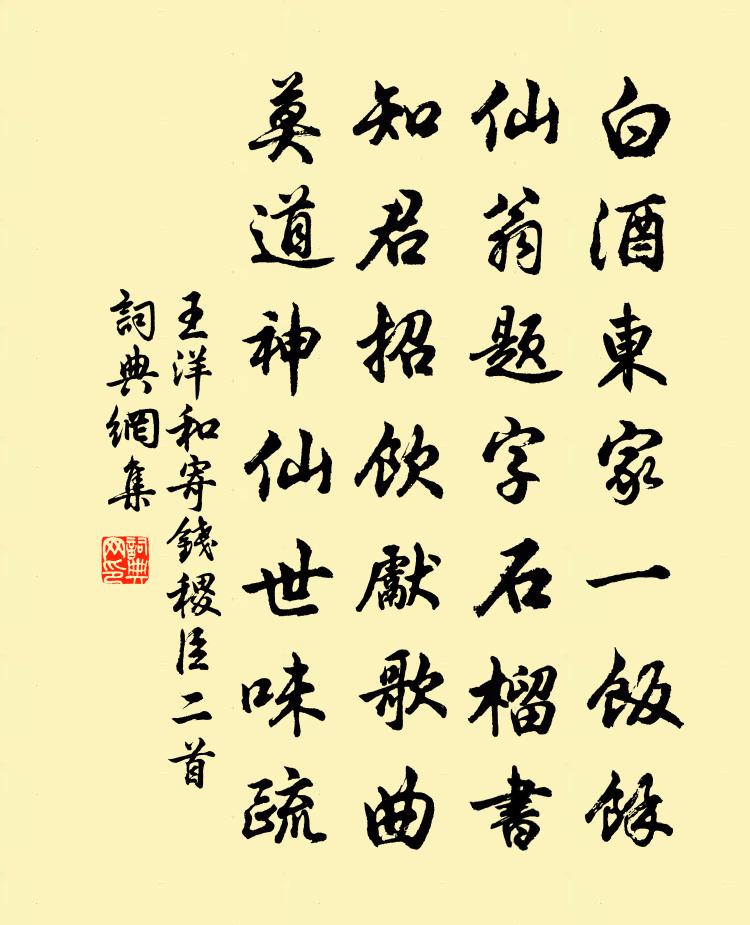 白酒東家一飯餘
仙翁題字石榴書
知君招飲獻歌曲
莫道神仙世味疏
王洋和寄錢稷臣二首
詞典網集
詞典网印